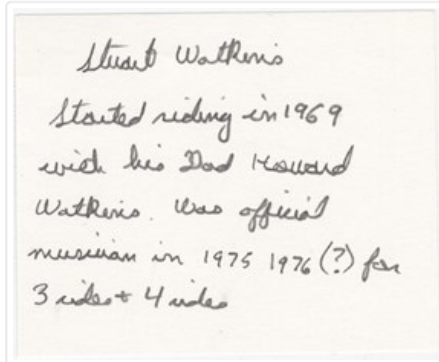 Stuart Watkins
Started riding in 1969
with his Dad Howard
Watkins. Was official
musician in 1975 1976 (?) for
3 rides + 4 rides